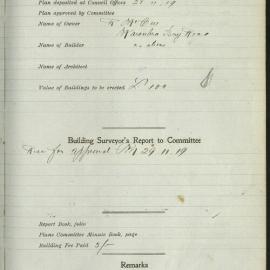 Plan deposited at Council Offices 21 11 19
Plan approved by Committee
Name of Owner
Name of Builder
Name of Architect
Value of Buildings to be erected £ 100
Building Surveyor's Report to Committee
for approval 29 11 19
Report Book, folio
Plans Committee Minute Book, page
Building Fee Paid 5/-
Remarks